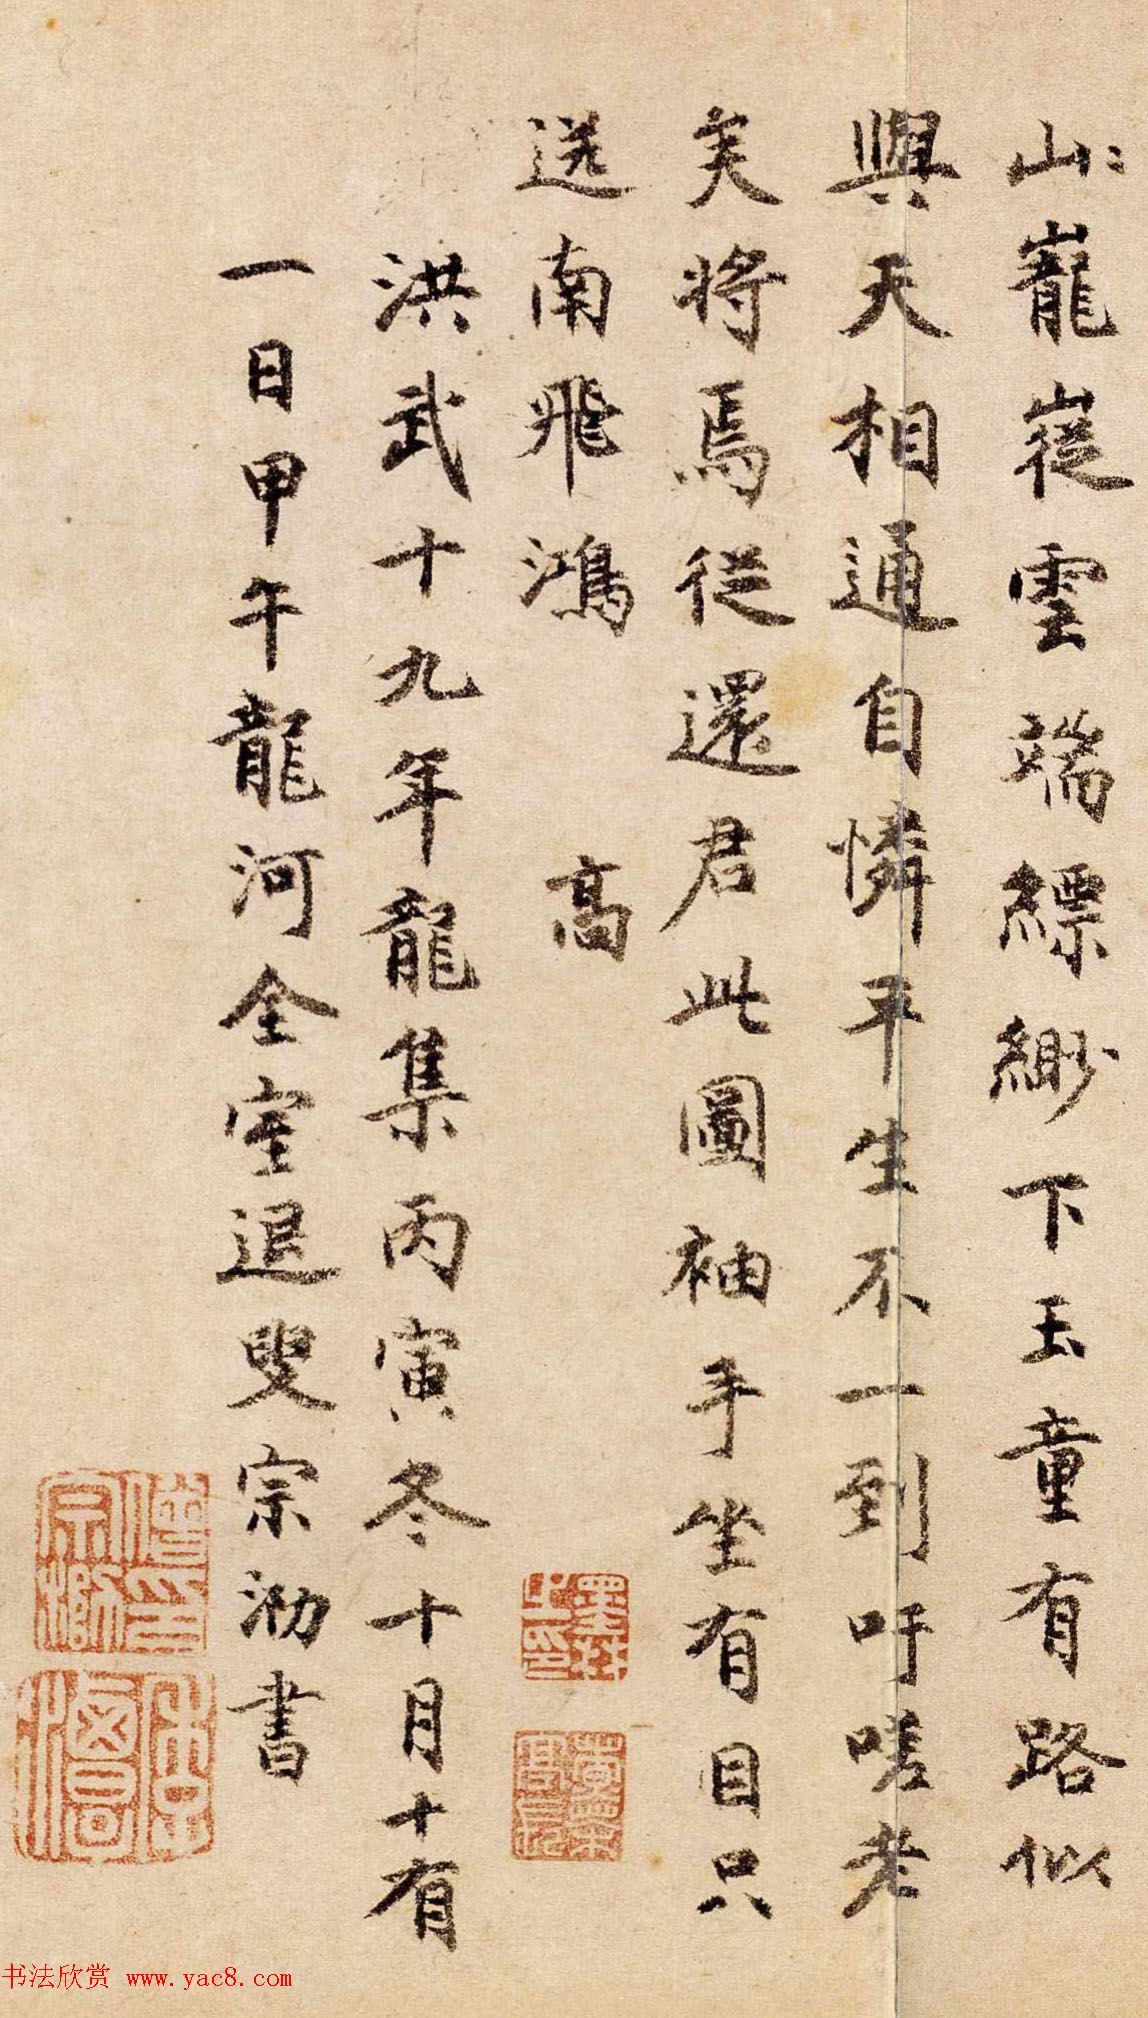 山〻巃嵸雲端縹緲下玉童有路似
與天相通自憐平生不一到吁嗟老
矣將焉從還君此圖袖手坐有目只
送南飛鴻 高
洪武十九年龍集丙寅冬十月十有
一日甲午龍河全室退叟宗泐書
书法欣赏 www.yac8.com